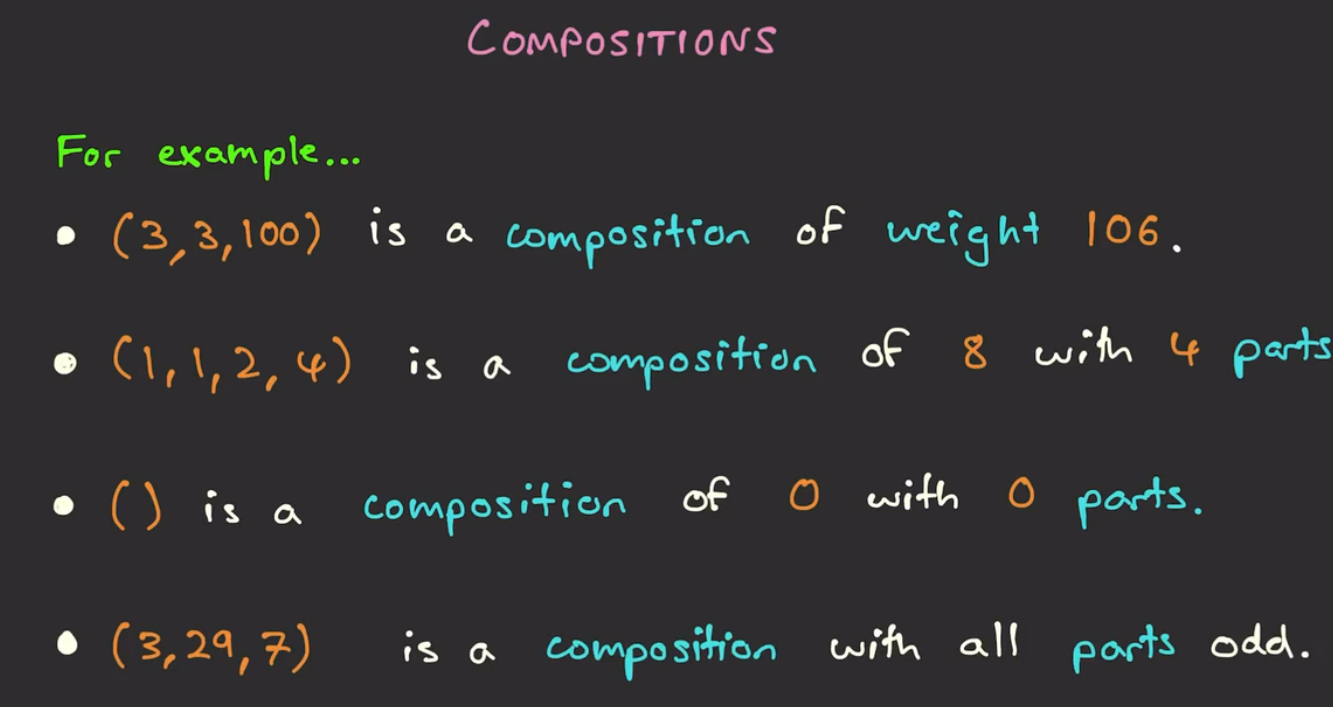 COMPOSITIONS
For example...
• (3,3,100) is a composition of weight 106.
• (1,1,2,4) is a composition of 8 with 4 parts
• () is a composition of 0 with 0 parts.
• (3,29,7) is a composition with all parts odd.